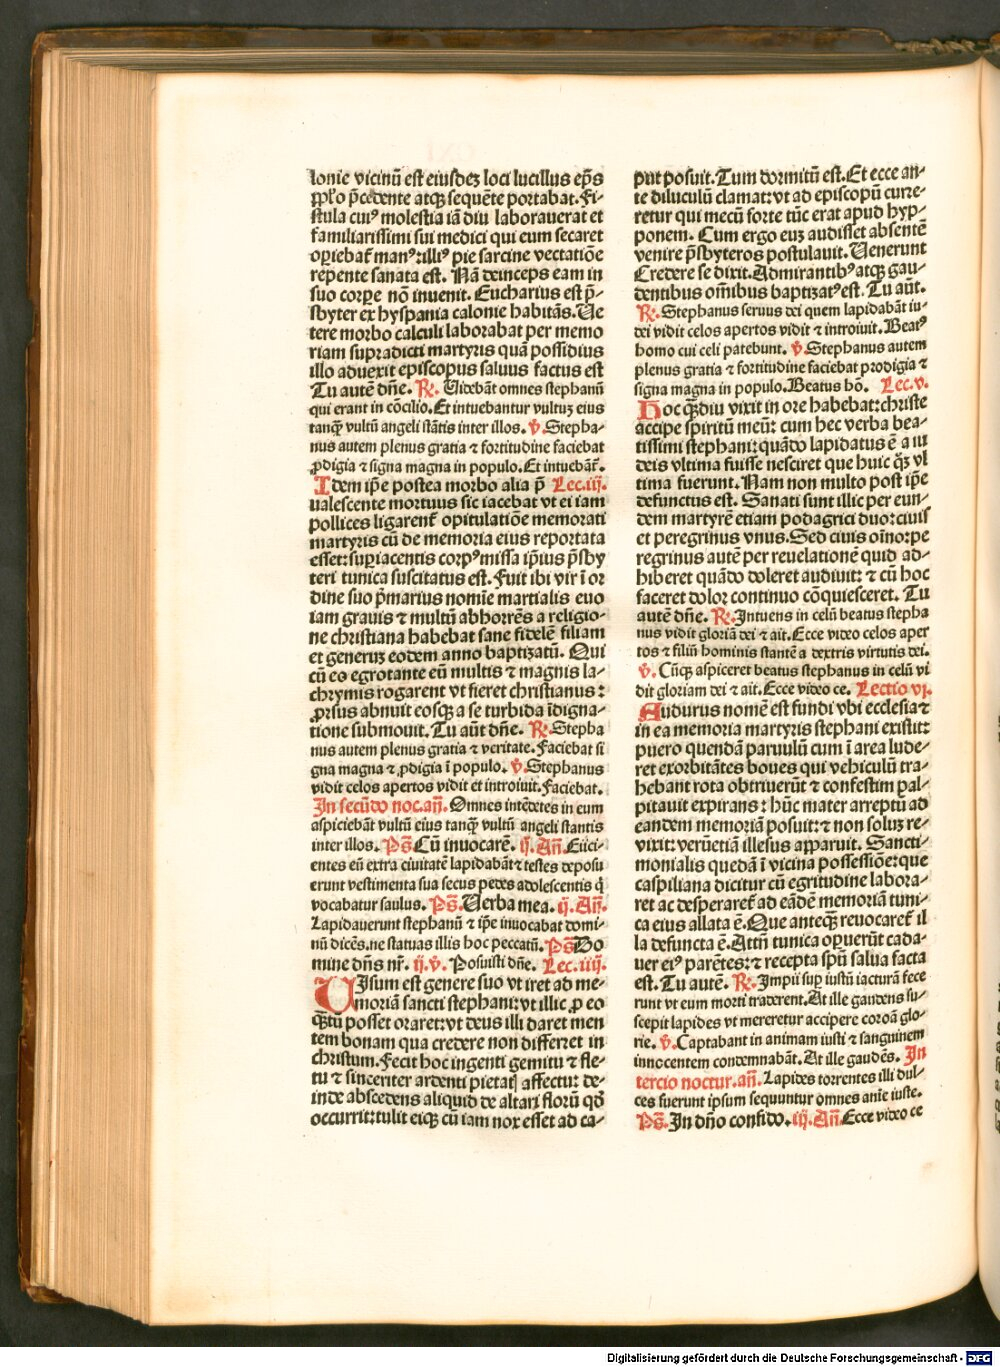 lonie vicinū est eiusdeʒ loci lucillus ep̄s
ꝓplo p̄cedente atqʒ sequēte portabat. Fi-
stula cuiꝰ molestia iā diu laborauerat et
familiarissimi sui medici qui eum secaret
oꝑiebat̄ manꝰ: illiꝰ pie sarcine vectatiōe
repente sanata est. Nā deinceps eam in
suo corꝑe nō inuenit. Eucharius est p̄-
sbyter ex hyspania calonie habitās. Ue
tere morbo calculi laborabat per memo
riam supradicti martyris quā possidius
illo aduexit episcopus saluus factus est
Tu autē dn̄e. ℟. Uidebāt omnes stephanū
qui erant in cōcilio. Et intuebantur vultuʒ eius
tanqʒ̄ vultū angeli stātis inter illos. ℣. Stepha-
nus autem plenus gratia ⁊ fortitudine faciebat
ꝓdigia ⁊ signa magna in populo. Et intuebāt̄.
Idem ip̄e postea morbo alia p̄ Lec.iij.
ualescente mortuus sic iacebat vt ei iam
pollices ligarent̄ opitulatiōe memorati
martyris cū de memoria eius reportata
esset: suꝑiacentis corpꝰ missa ip̄ius p̄sby
teri tunica suscitatus est. Fuit ibi vir ī or
dine suo p̄marius nomīe martialis euo
iam grauis ⁊ multū abhorrēs a religio-
ne christiana habebat sane fidelē filiam
et generuʒ eodem anno baptizatū. Qui
cū eo egrotante eū multis ⁊ magnis la-
chrymis rogarent vt fieret christianus:
ꝓrsus abnuit eosqʒ a se turbida īdigna-
tione submouit. Tu aūt dn̄e. ℟. Stepha
nus autem plenus gratia ⁊ veritate. Faciebat si
gna magna ⁊ ꝓdigia ī populo. ℣. Stephanus
vidit celos apertos vidit et introiuit. Faciebat.
In secūdo noc.an̄. Omnes intēdetes in eum
aspiciebāt vultū eius tanqʒ̄ vultū angeli stantis
inter illos. Ps̄. Cū inuocarē. ij. An̄. Eiici-
entes eū extra ciuitatē lapidabāt ⁊ testes deposu
erunt vestimenta sua secus pedes adolescentis q̇
vocabatur saulus. Ps̄. Uerba mea. ij. An̄.
Lapidauerunt stephanū ⁊ ip̄e inuocabat domi-
nū dicēs. ne statuas illis hoc peccatū. Ps̄ Do
mine dn̄s nr̄. ij. ℣. Posuisti dn̄e. Lec.iiij.
UIsum est genere suo vt iret ad me-
moriā sancti stephani: vt illic ꝓ eo
qʒ̄tū posset oraret: vt deus illi daret men
tem bonam qua credere non differret in
christum. Fecit hoc ingenti gemitu ⁊ fle-
tu ⁊ sinceriter ardenti pietatꝭ affectu: de-
inde abscedens aliquid de altari florū qd̄
occurrit: tulit eiqʒ cū iam nox esset ad ca-
put posuit. Tum dormitū est. Et ecce an-
te diluculū clamat: vt ad episcopū curre-
retur qui mecū forte tūc erat apud hyp-
ponem. Cum ergo euʒ audisset absentē
venire p̄sbyteros postulauit. Uenerunt
Credere se dixit. Admirantibꝰ atqʒ gau-
dentibus om̄ibus baptizatꝰ est. Tu aūt.
℟. Stephanus seruus dei quem lapidabāt iu-
dei vidit celos apertos vidit ⁊ introiuit. Beatꝰ
homo cui celi patebunt. ℣. Stephanus autem
plenus gratia ⁊ fortitudine faciebat prodigia ⁊
signa magna in populo. Beatus hō. Lec.v.
Hoc qʒ̄diu vixit in ore habebat: christe
accipe spiritū meū: cum hec verba bea-
tissimi stephani: quādo lapidatus ē a iu
deis vltima fuisse nesciret que huic qʒ̄ vl
tima fuerunt. Nam non multo post ip̄e
defunctus est. Sanati sunt illic per eun-
dem martyrē etiam podagrici duo: ciuis
et peregrinus vnus. Sed ciuis oīno: pe
regrinus autē per reuelationē quid ad-
hiberet quādo doleret audiuit: ⁊ cū hoc
faceret dolor continuo cōquiesceret. Tu
autē dn̄e. ℟. Intuens in celū beatus stepha
nus vidit gloriā dei ⁊ ait. Ecce video celos aper
tos ⁊ filiū hominis stantē a dextris virtutis dei.
℣. Cūqʒ aspiceret beatus stephanus in celū vi
dit gloriam dei ⁊ ait. Ecce video ce. Lectio vj.
Audurus nomē est fundi vbi ecclesia ⁊
in ea memoria martyris stephani existit:
puero quendā paruulū cum ī area lude-
ret exorbitātes boues qui vehiculū tra-
hebant rota obtriuerūt ⁊ confestim pal-
pitauit expirans: hūc mater arreptū ad
eandem memoriā posuit: ⁊ non soluʒ re-
vixit: verūetiā illesus apparuit. Sancti-
monialis quedā ī vicina possessiōe: que
caspiliana dicitur cū egritudine labora-
ret ac desperaret̄ ad eādē memoriā tuni-
ca eius allata ē. Que anteqʒ̄ reuocaret̄ il
la defuncta ē. Attn̄ tunica oꝑuerūt cada-
uer eiꝰ parētes: ⁊ recepta spū salua facta
est. Tu autē. ℟. Impii suꝑ iustū iacturā fece
runt vt eum morti traderent. At ille gaudens su-
scepit lapides vt mereretur accipere coronā glo-
rie. ℣. Captabant in animam iusti ⁊ sanguinem
innocentem condemnabāt. At ille gaudēs. In
tercio noctur.an̄. Lapides torrentes illi dul-
ces fuerunt ipsum sequuntur omnes anīe iuste.
Ps̄. In dn̄o confido. iij. An̄. Ecce video ce
Digitalisierung gefördert durch die Deutsche Forschungsgemeinschaft - DFG